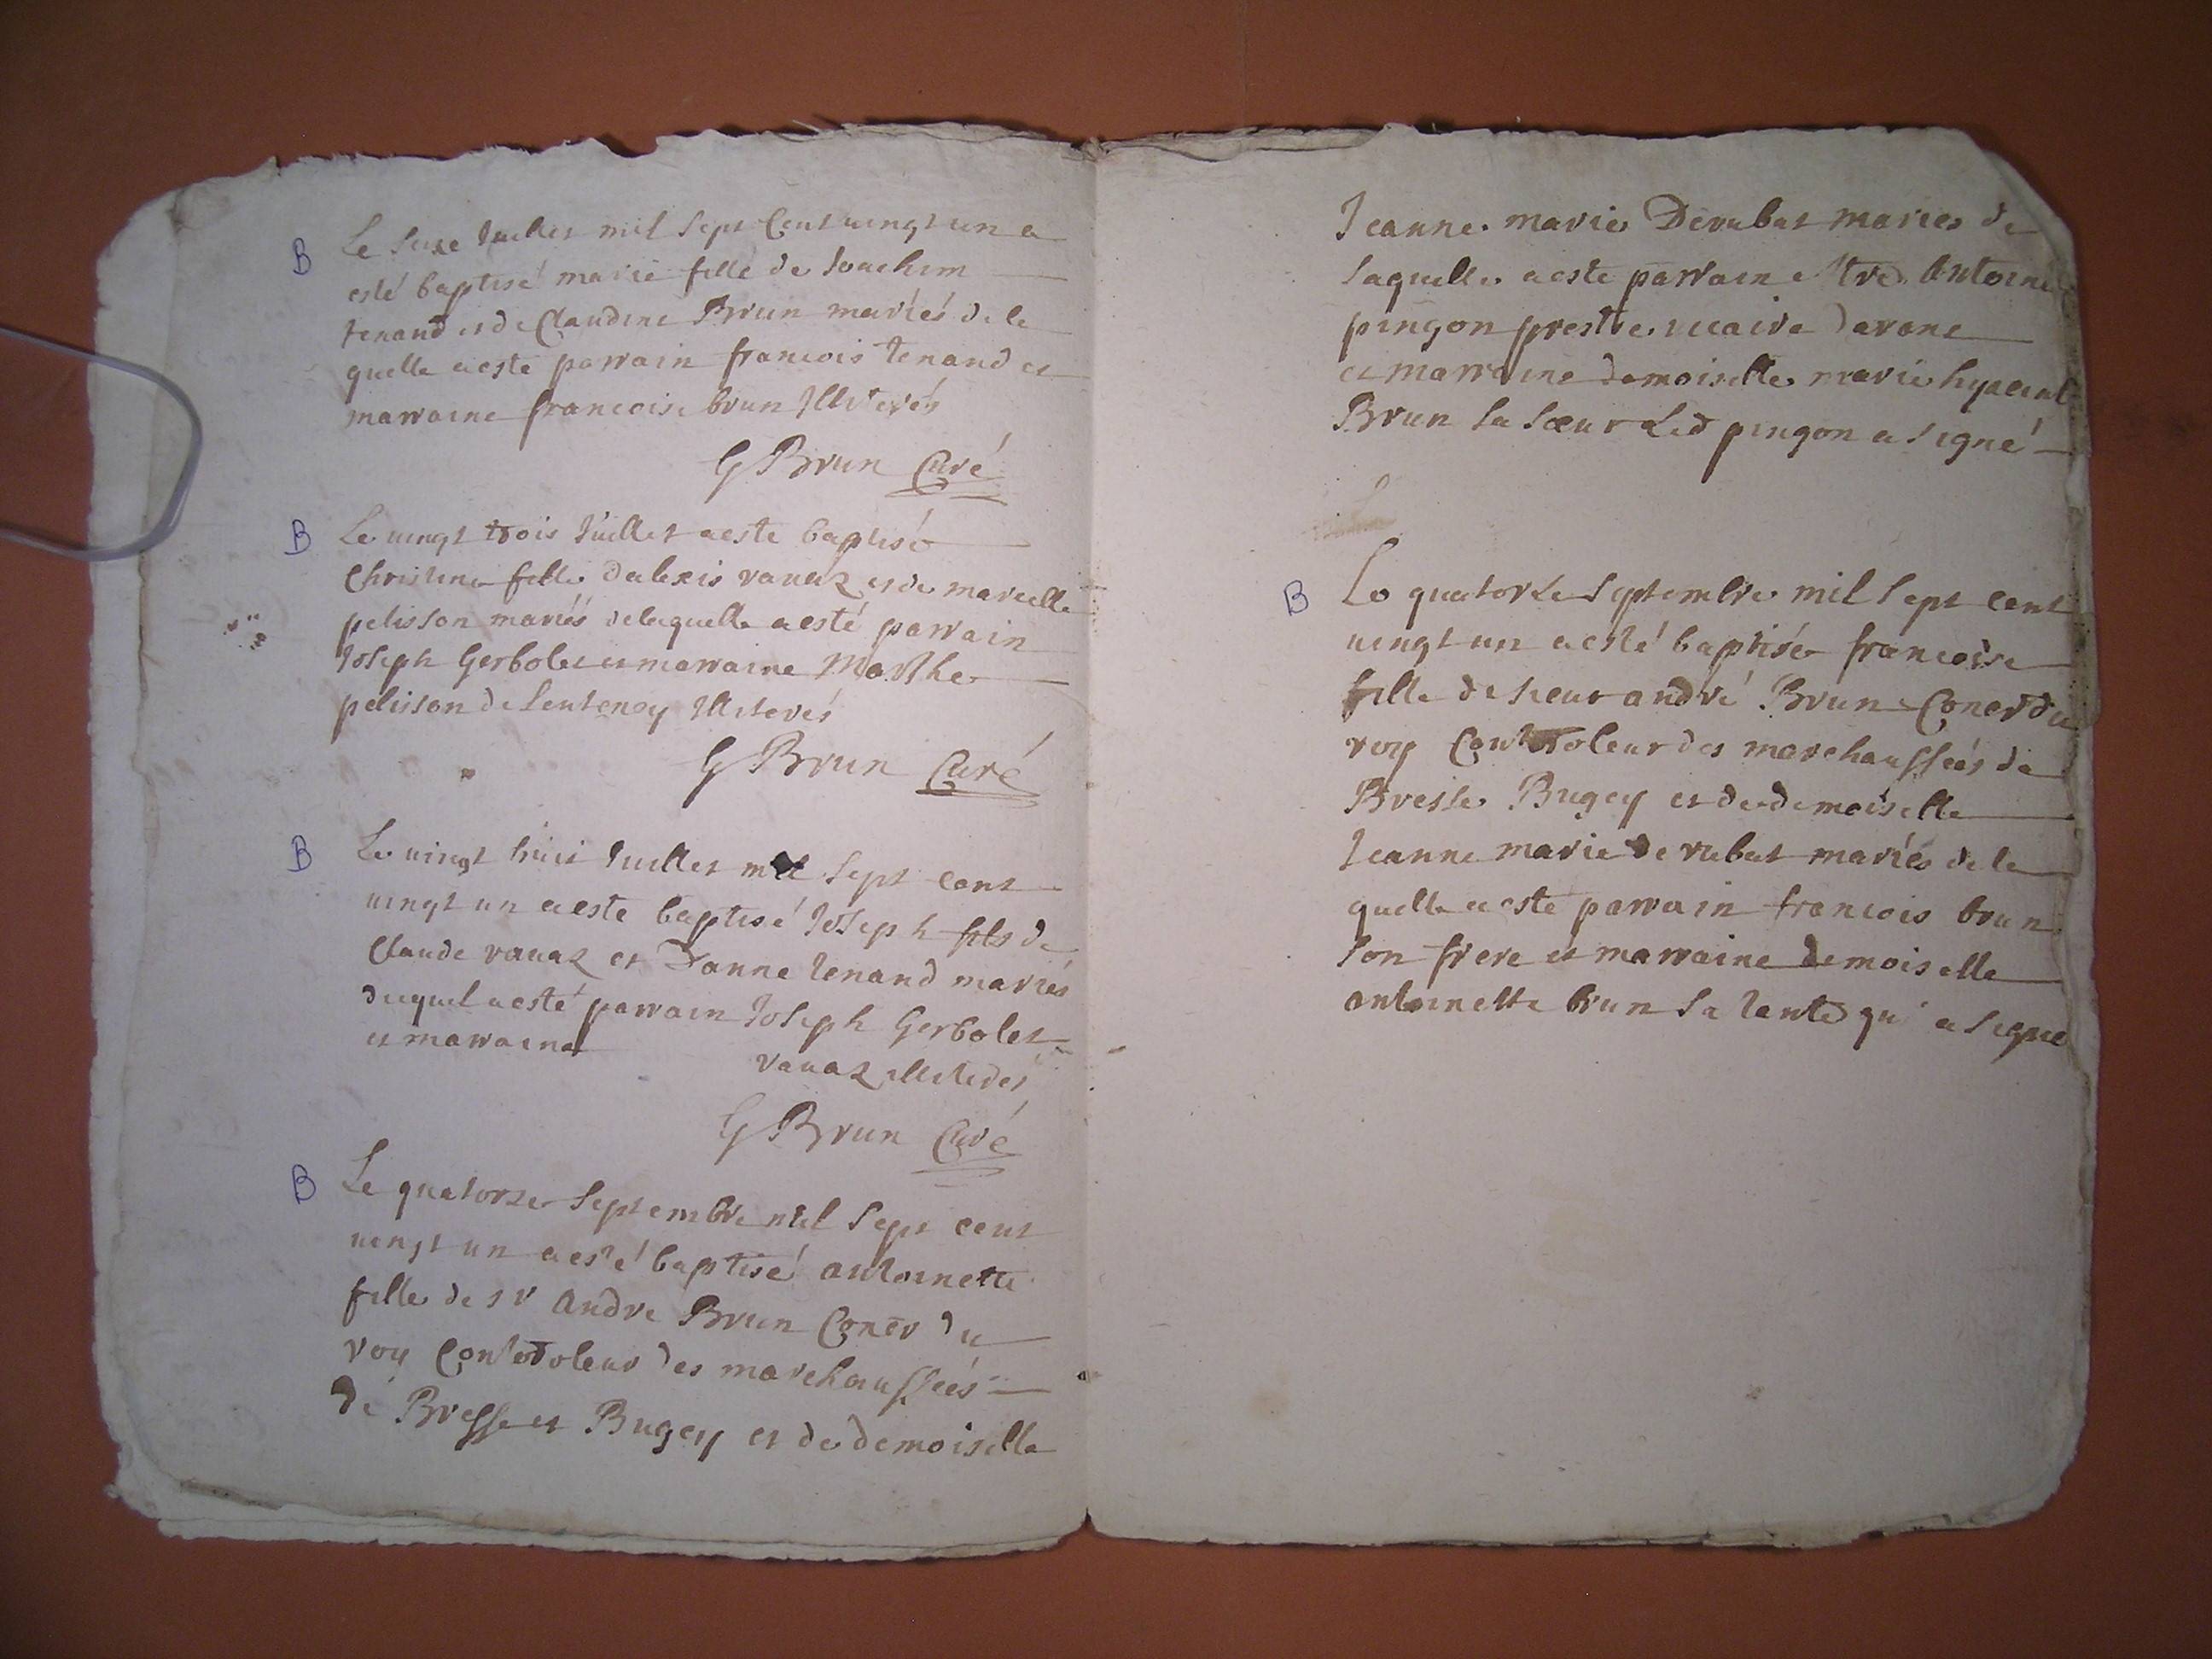 B Le seize Juillet mil sept cent uingt un a
esté baptisé marie fille de Joachim
tenand et de Claudine Brun mariés de la
quelle a esté parrain francois tenand et
marraine francoise brun Illiterés
G Brun Curé
B Le uingt trois Juillet a este baptisé
Christine fille dalexis vanaz et de marcelle
pelisson mariés de laquelle a esté parrain
Joseph Gerbolet et marraine Marthe
pelisson de Lentenay Illiterés
G Brun Curé
B Le uingt huit Juillet mil sept cent
uingt un a este baptisé Joseph fils de
Claude vanaz et Danne tenand mariés
duquel a esté parrain Joseph Gerbolet
et marraine
vanaz illiterés
G Brun Curé
B Le quatorze septembre mil sept cent
uingt un a esté baptisé antoinette
fille de sr andre Brun Coner du
roy Controoleur des marechaussées
de Bresse et Bugey et de demoiselle
Jeanne marie Derubat maries de
laquelle a este parrain Mre Antoine
pingon prestre uicaire darane
et marraine demoiselle marie hyacint
Brun sa sœur Led pingon a signé
B Le quatorze septembre mil sept cent
uingt un a esté baptisée francoise
fille de sieur andré Brun Coner du
roy Controoleur des marechaussées de
Bresse Bugey et de demoiselle
Jeanne marie de rubat mariés de la
quelle a este parrain francois brun
son frere et marraine demoiselle
antoinette brun sa tante qui a signe